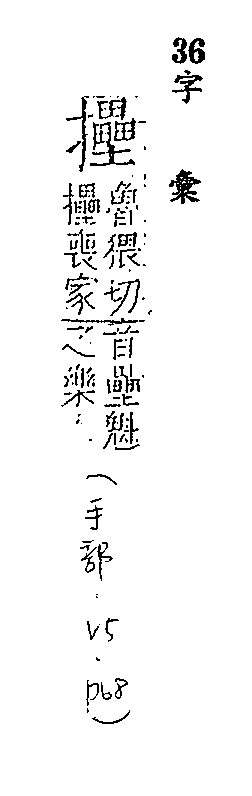 36 字 彙
㩸
魯猥切音壘魁
㩸喪家之樂
(手部.V5.p68)